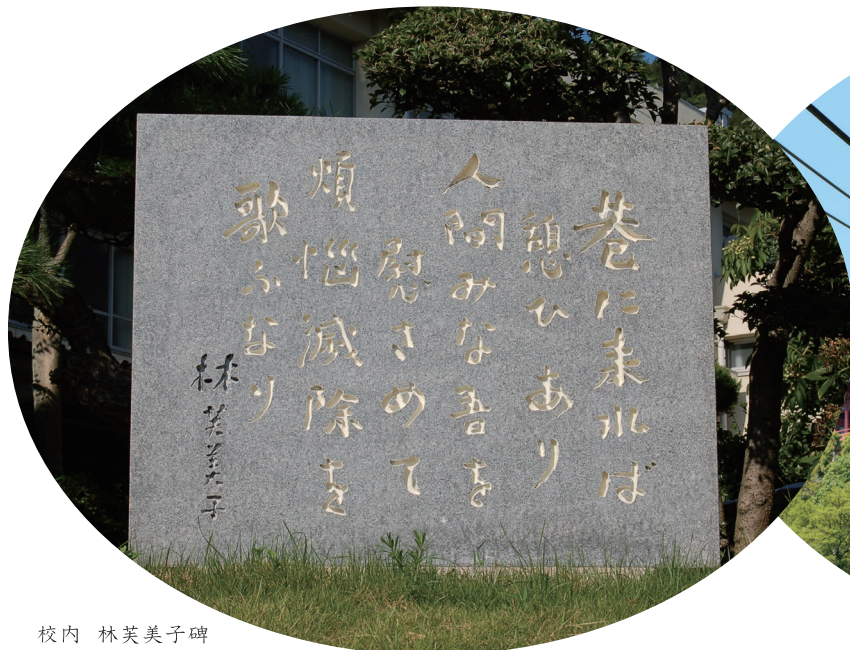 巷に来れば
憩ひあり
人間みな吾を
慰さめて
煩悩滅除を
歌ふなり
林芙美子
校内 林芙美子碑